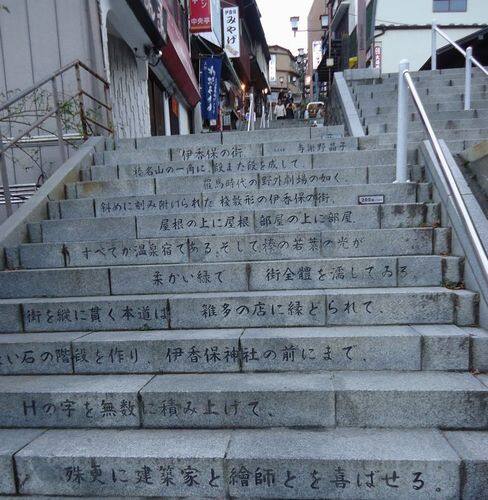 伊香保の街、 与謝野晶子
榛名山の一角に、段また段を成して、
羅馬時代の野外劇場の如く、
斜めに刻み附けられた 棧敷形の伊香保の街、
屋根の上に屋根、部屋の上に部屋、
すべてが温泉宿である。そして、榛の若葉の光が
柔かい緑で 街全體を濡してゐる。
街を縦に貫く本道は 雑多の店に縁どられて、
い石の階段を作り、伊香保神社の前にまで、
Hの字を無數に積み上げて、
殊更に建築家と繪師とを喜ばせる。
伊香保
みやげ
中央亭